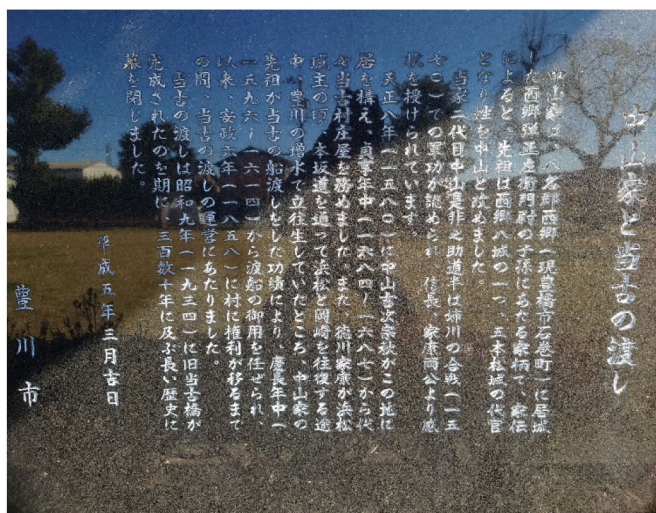 中山家と当古の渡し
中山家は、八名郡西郷(現豊橋市石巻町)に居城し
た西郷弾正左衛門尉の子孫にあたる家柄で、家伝
によると、先祖は西郷八城の一つ、五本松城の代官
となり姓を中山と改めました。
当家二代目中山是非之助道半は姉川の合戦(一五
七〇)での軍功が認められ、信長、家康両公より感
状を授けられています。
天正八年(一五八〇)に中山吉次宗秋がこの地に
居を構え、貞享年中(一六八四~一六八七)から代
々当古村庄屋を務めました。また、徳川家康が浜松
城主の頃、本坂道を通って浜松と岡崎を往復する途
中、豊川の増水で立往生していたところ、中山家の
先祖が当古の船渡しをした功績により、慶長年中(
一五九六~一六一四)から渡船の御用を任せられ、
以来、安政六年(一八五八)に村に権利が移るまで
の間、当古の渡しの運営にあたりました。
当古の渡しは昭和九年(一九三四)に旧当古橋が
完成されたのを期に、三百数十年に及ぶ長い歴史に
幕を閉じました。
平成五年三月吉日
豊川市